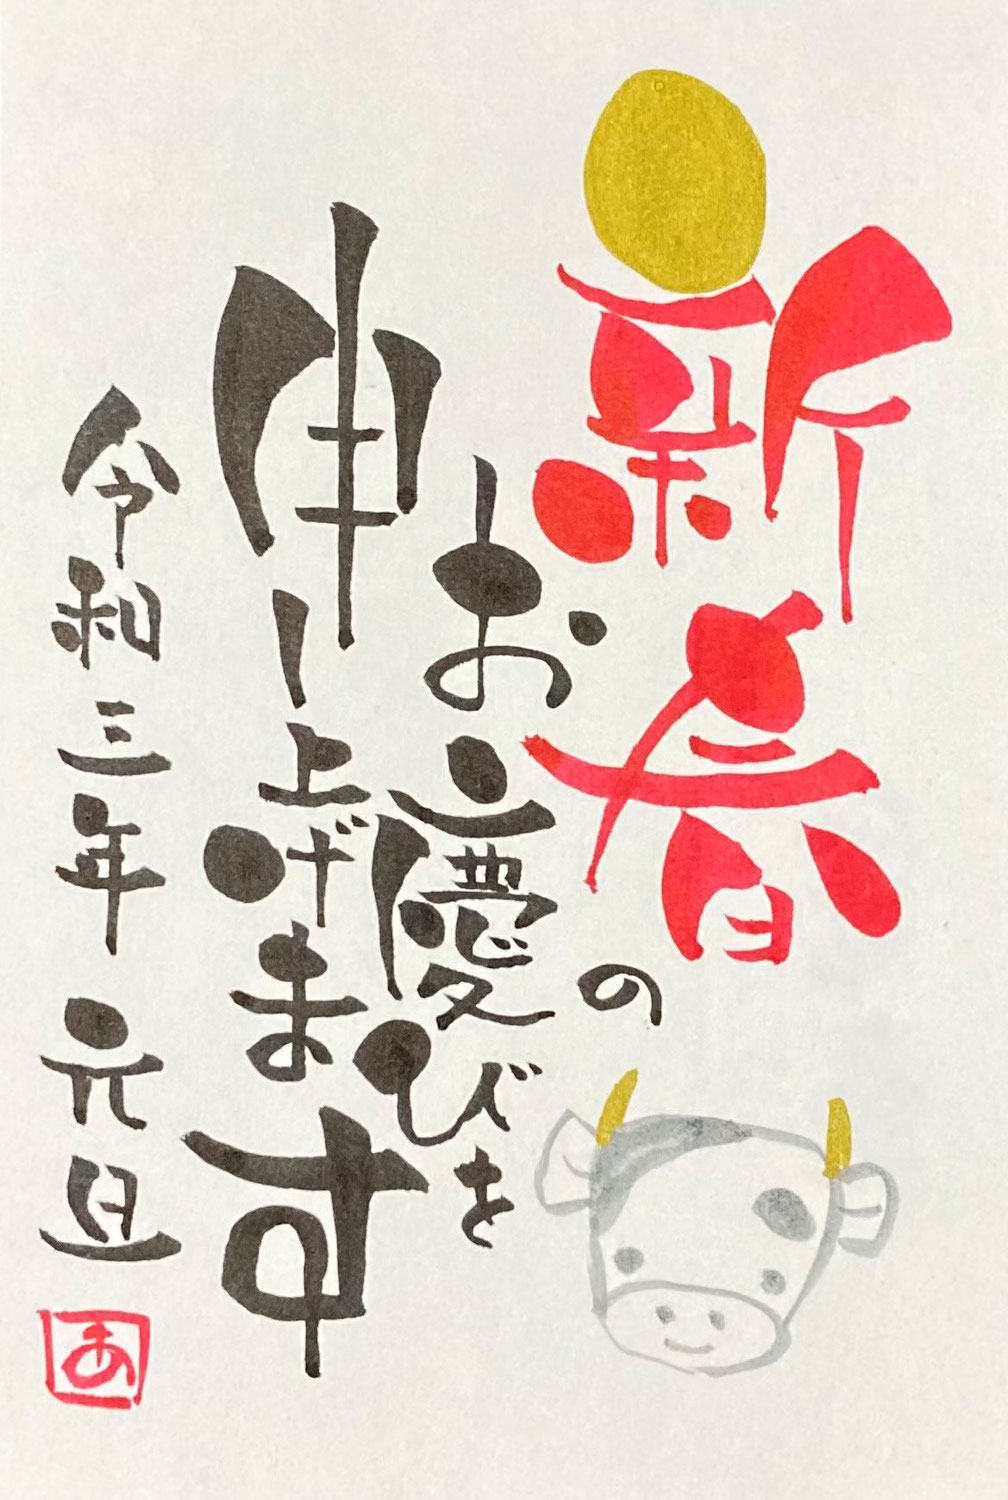 新春の
お慶びを
申し上げます
令和三年 元旦
あ